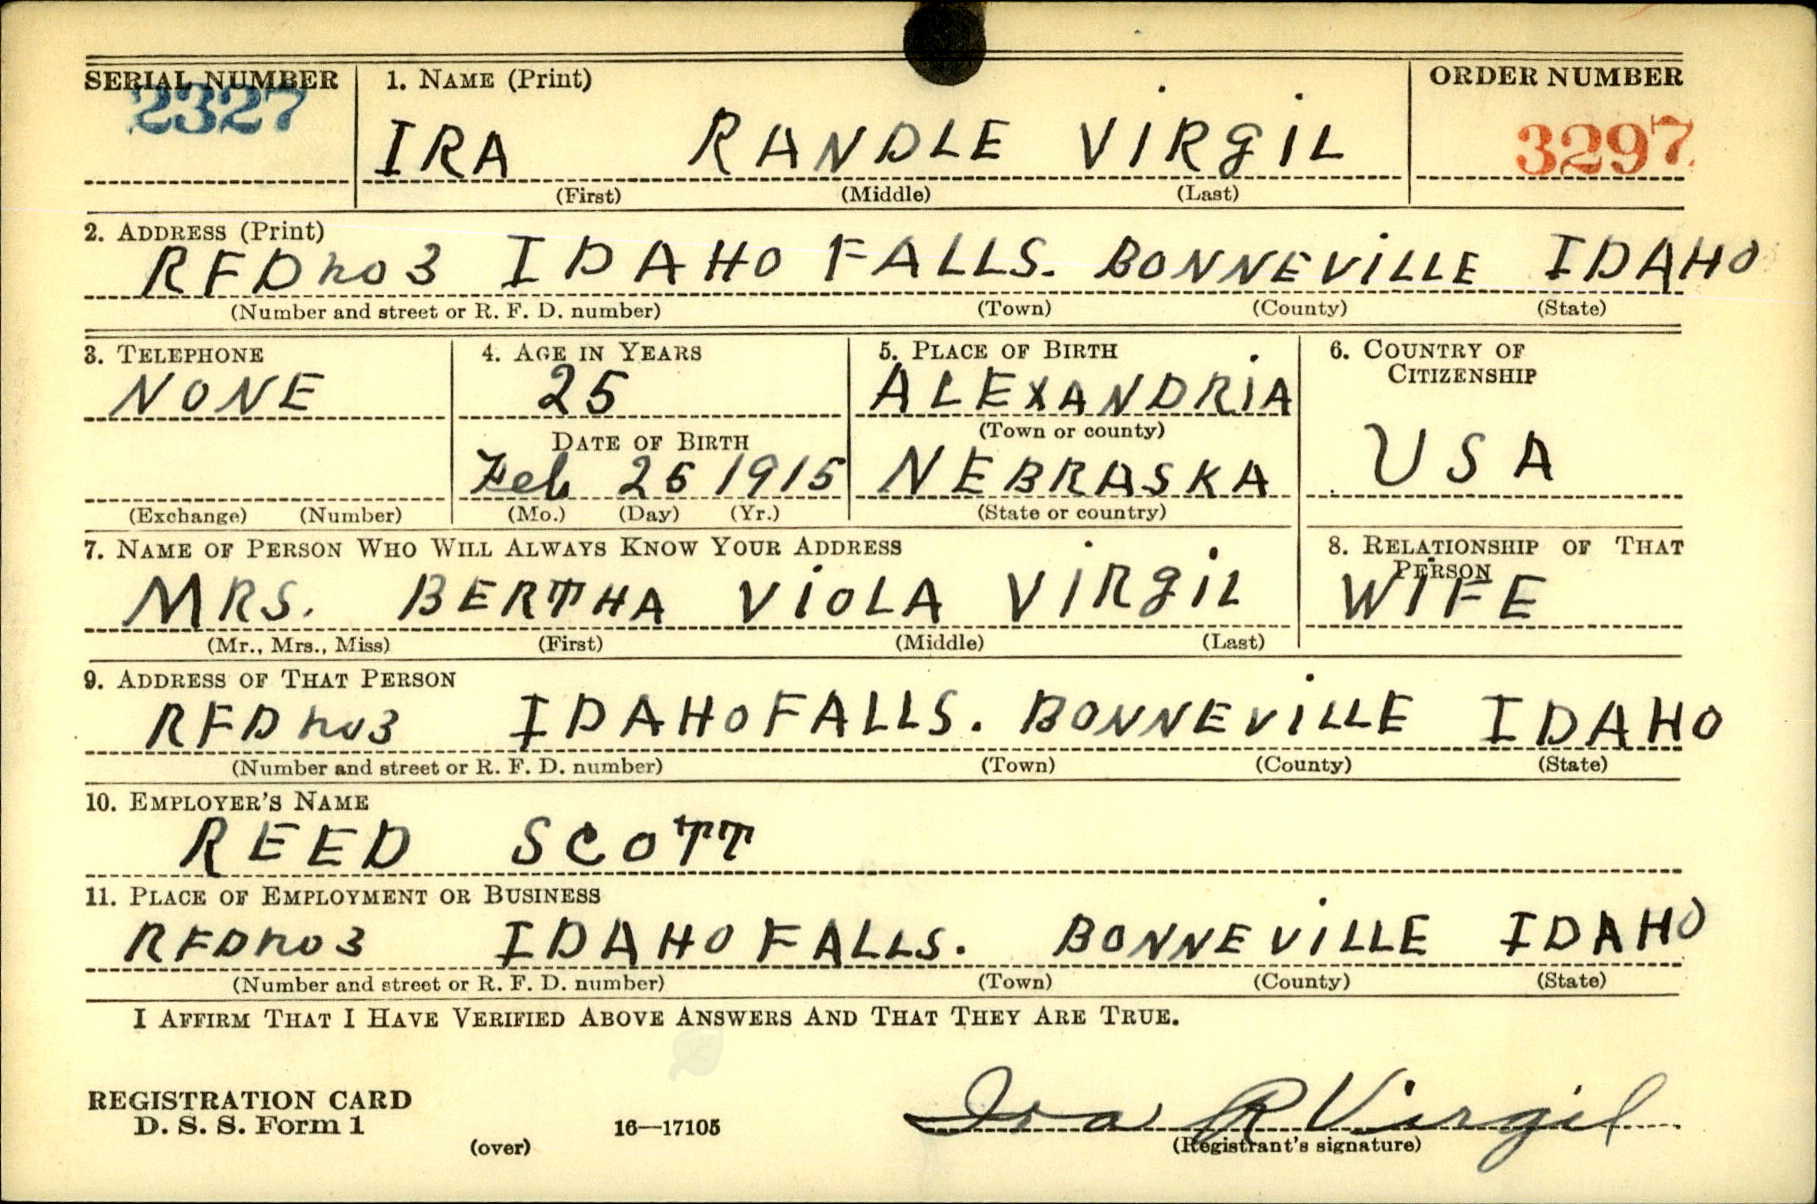 SERIAL NUMBER 1. NAME (Print) ORDER NUMBER
2327 IRA RANDLE VIRGIL 3297
(First) (Middle) (Last)
2. ADDRESS (Print)
RFD no 3 IDAHO FALLS. BONNEVILLE IDAHO
(Number and street or R. F. D. number) (Town) (County) (State)
3. TELEPHONE 4. AGE IN YEARS 5. PLACE OF BIRTH 6. COUNTRY OF CITIZENSHIP
NONE 25 ALEXANDRIA
DATE OF BIRTH (Town or county)
Feb 1915 NEBRASKA USA
(Exchange) (Number) (Mo.) (Day) (Yr.) (State or country)
7. NAME OF PERSON WHO WILL ALWAYS KNOW YOUR ADDRESS 8. RELATIONSHIP OF THAT PERSON
MRS. BERTHA VIOLA VIRGIL WIFE
(Mr., Mrs., Miss) (First) (Middle) (Last)
9. ADDRESS OF THAT PERSON
RFD no 3 IDAHO FALLS. BONNEVILLE IDAHO
(Number and street or R. F. D. number) (Town) (County) (State)
10. EMPLOYER'S NAME
REED SCOTT
11. PLACE OF EMPLOYMENT OR BUSINESS
RFD no 3 IDAHO FALLS. BONNEVILLE IDAHO
(Number and street or R. F. D. number) (Town) (County) (State)
I AFFIRM THAT I HAVE VERIFIED ABOVE ANSWERS AND THAT THEY ARE TRUE.
Ira R Virgil
REGISTRATION CARD
D. S. S. Form 1 16—17105
(over) (Registrant's signature)